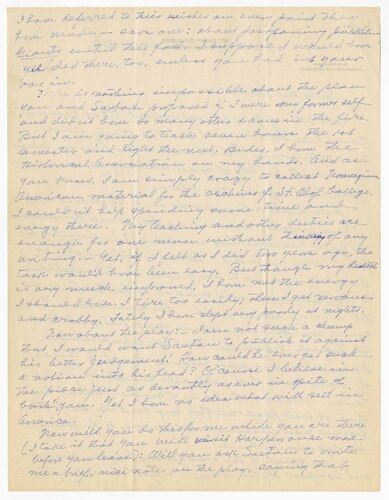 I have deferred to their wishes on every point they
have made — save one: about postponing publishing
Giants until this fall. I suppose I would have
yielded there, too, unless you had put your
oar in.
There is nothing impossible about the plan
you and Saxton proposed if I were my former self
and didn't have so many other irons in the fire.
But I am going to teach seven hours the 1st
semester and eight the next. Besides, I have the
Historical Association on my hands. And as
you know, I am simply crazy to collect Norwegian
American material for the archives of St. Olaf College.
I couldn't help spending some time and
energy there. My teaching and other duties are
enough for one man without thinking of any
writing. — Yet, if I felt as I did two years ago, the
task would have been easy. But though my health
is very much improved, I have not the energy
I should have. I tire too easily; then I get nervous
and crabby. Lately I have slept very poorly at nights.
Now about the play: — I am not such a chump
that I would want Saxton to publish it against
his better judgement. How could he ever get such
a notion into his head? Of course I believe in
the piece just as devoutly as ever in spite of
both you. Yet I have no idea what will sell in
America.
Now will you do this for me while you are there
(I take it that you will visit Harpers once more
before you leave): Will you ask Saxton to write
me a brief, nice note on the play, saying that